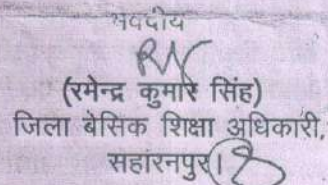 भवदीय
(रमेन्द्र कुमार सिंह)
जिला बेसिक शिक्षा अधिकारी,
सहारनपुर।